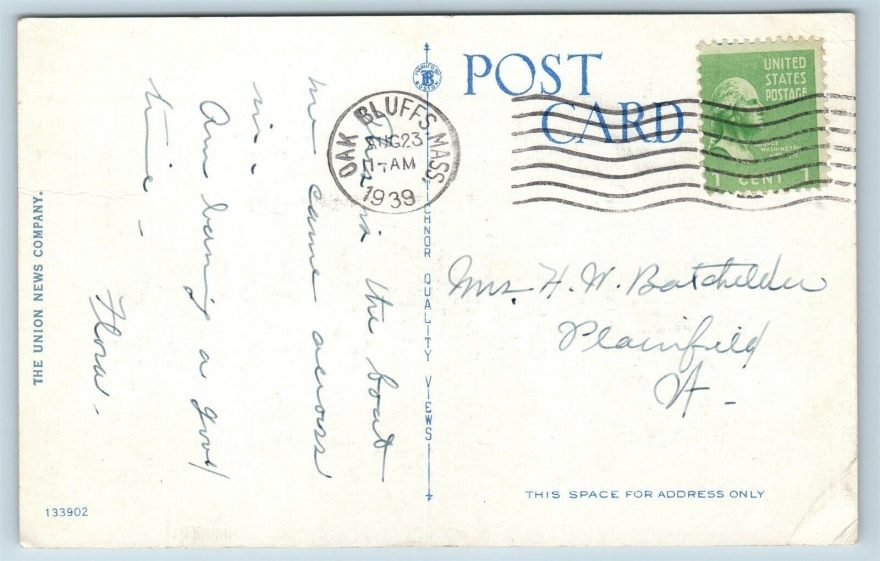 POST
CARD
UNITED
STATES
POSTAGE
GEORGE
WASHINGTON
1 CENT 1
OAK BLUFFS, MASS.
AUG 23
11-AM
1939
This is the boat
we came across
in.
Am having a good
time -
Flora.
Mrs. H. W. Batchelder
Plainfield
Vt -
THE UNION NEWS COMPANY.
TICHNOR QUALITY VIEWS
THIS SPACE FOR ADDRESS ONLY
133902